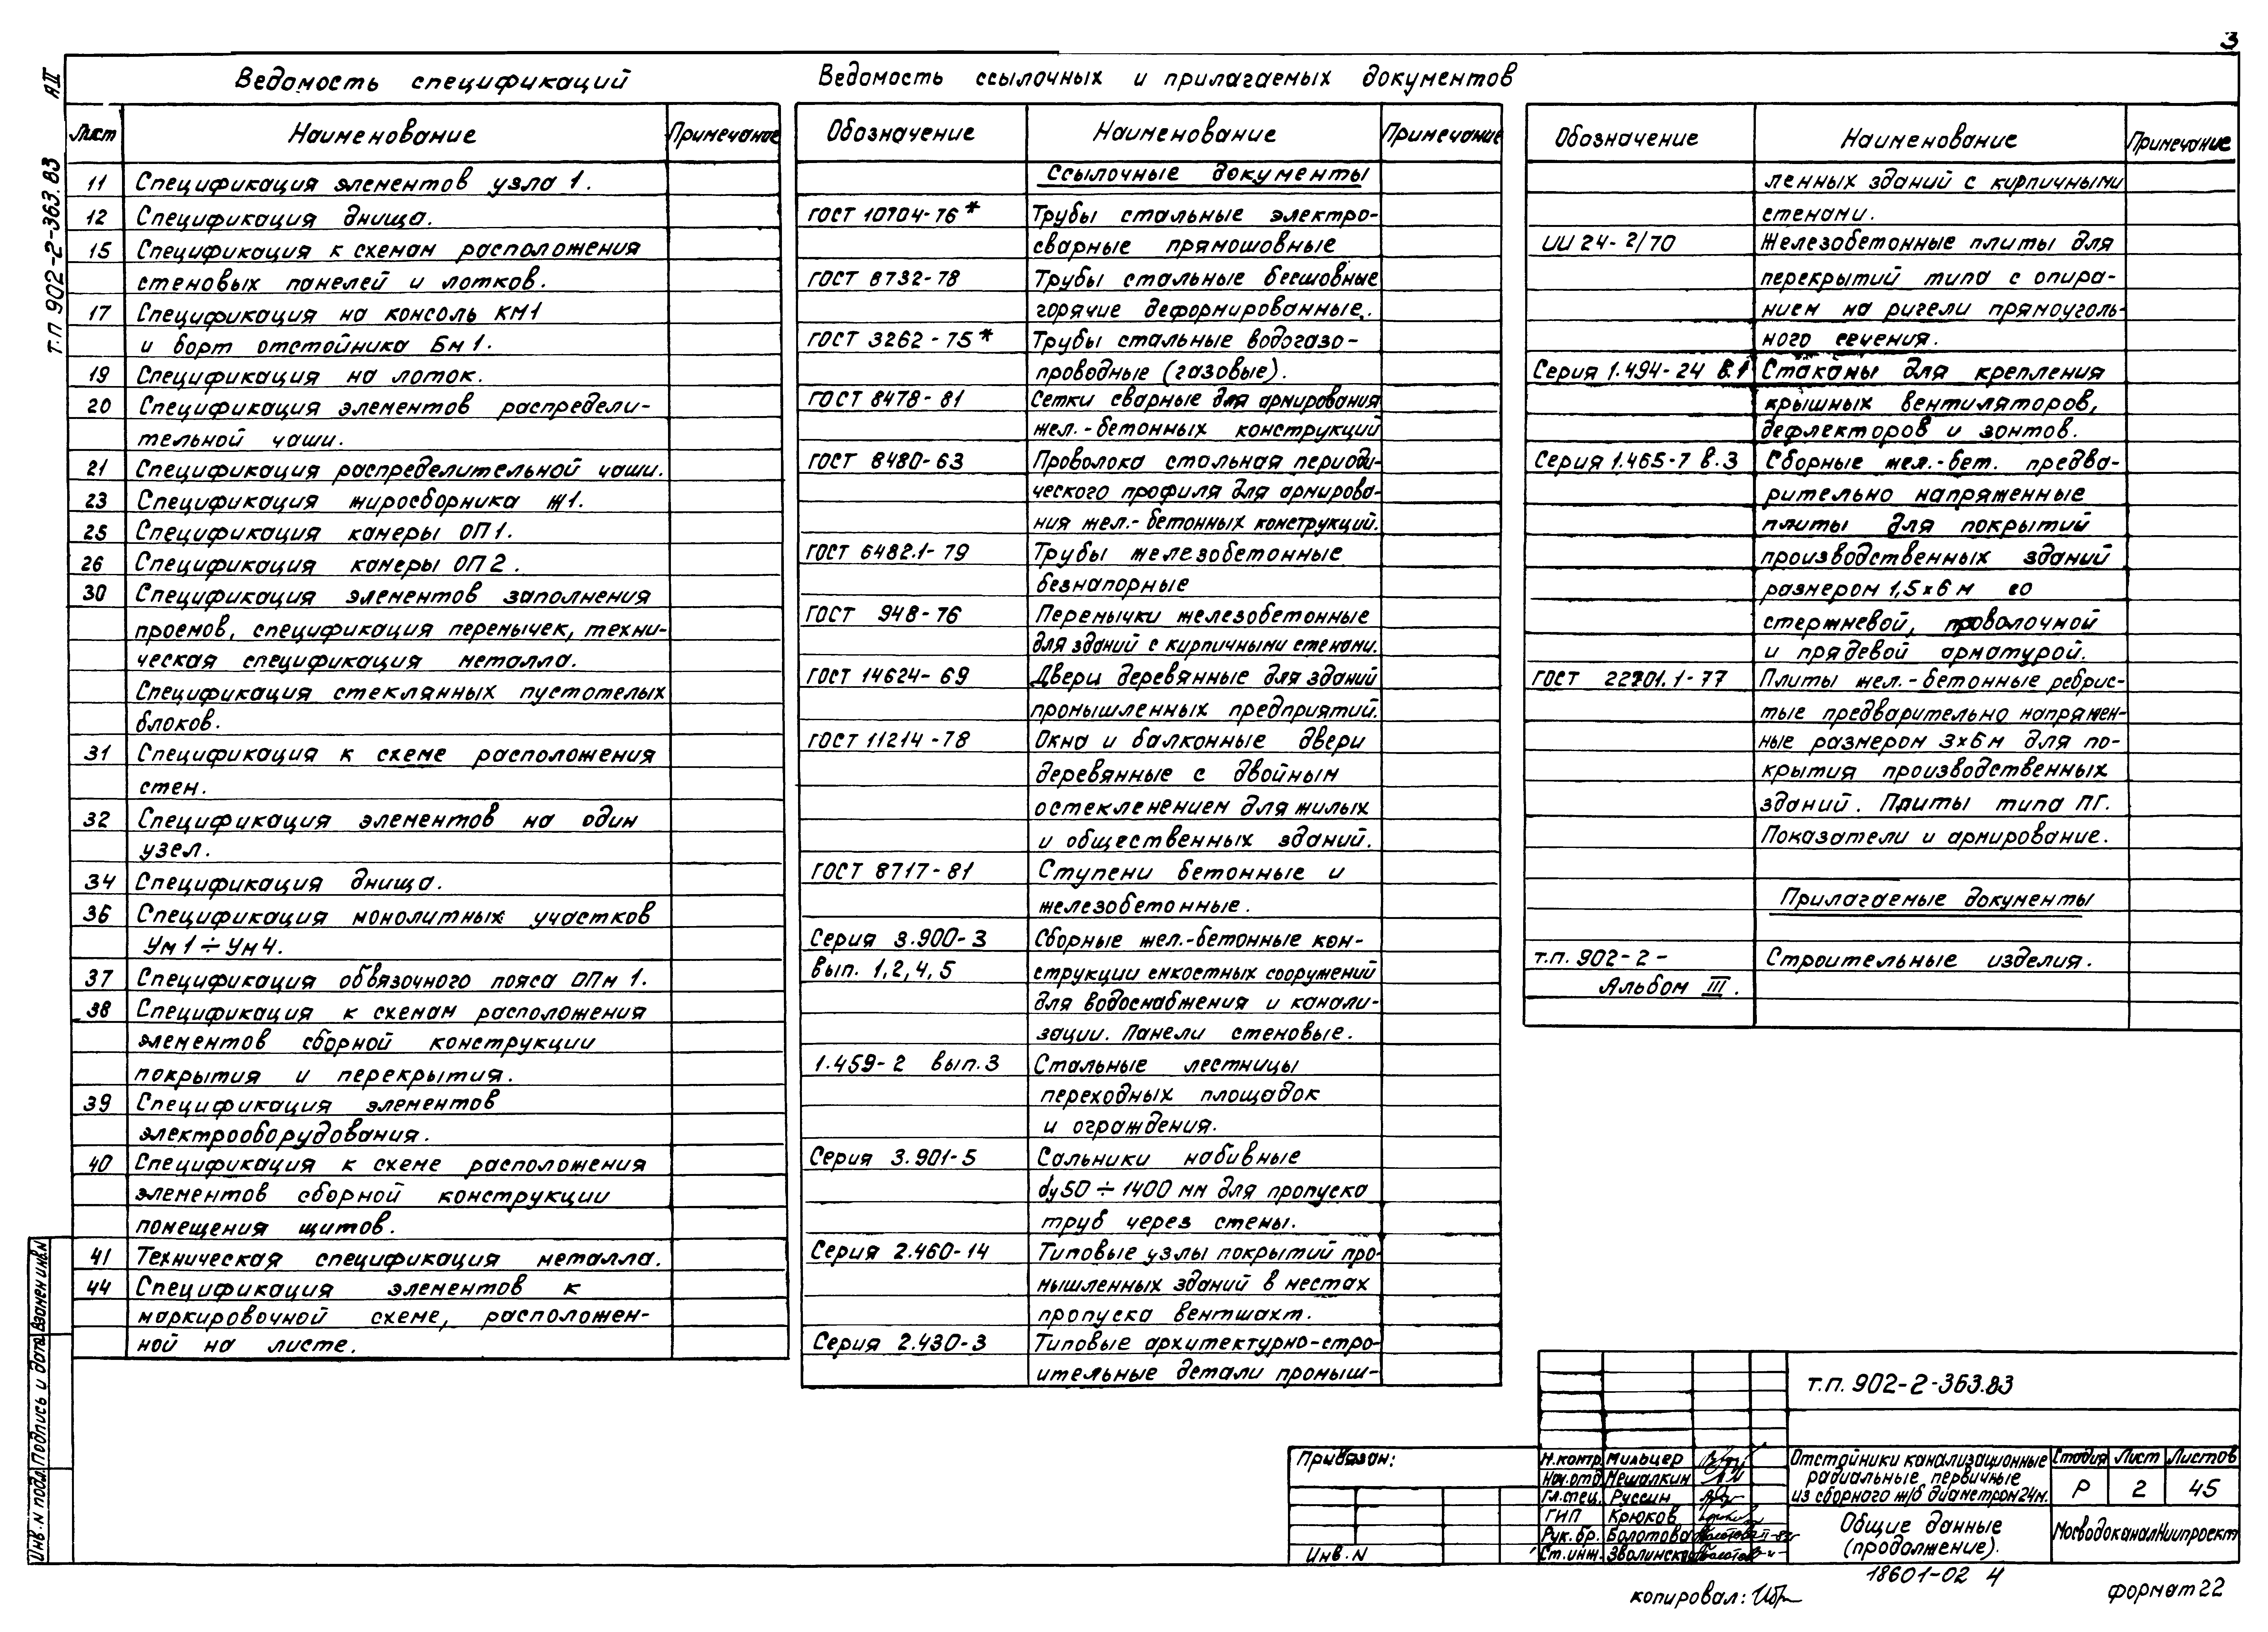 3
АII
т.п 902-2-363.83
Ведомость спецификаций
Лист Наименование Примечание
11 Спецификация элементов узла 1.
12 Спецификация днища.
15 Спецификация к схемам расположения
стеновых панелей и лотков.
17 Спецификация на консоль КМ1
и борт отстойника Бм1.
19 Спецификация на лоток.
20 Спецификация элементов распредели-
тельной чаши.
21 Спецификация распределительной чаши.
23 Спецификация жиросборника Ж1.
25 Спецификация камеры ОП1.
26 Спецификация камеры ОП2.
30 Спецификация элементов заполнения
проемов, спецификация перемычек, техни-
ческая спецификация металла.
Спецификация стеклянных пустотелых
блоков.
31 Спецификация к схеме расположения
стен.
32 Спецификация элементов на один
узел.
34 Спецификация днища.
36 Спецификация монолитных участков
Ум1÷Ум4.
37 Спецификация обвязочного пояса ОПм 1.
38 Спецификация к схемам расположения
элементов сборной конструкции
покрытия и перекрытия.
39 Спецификация элементов
электрооборудования.
40 Спецификация к схеме расположения
элементов сборной конструкции
помещения щитов.
41 Техническая спецификация металла.
44 Спецификация элементов к
маркировочной схеме, расположен-
ной на листе.
Ведомость ссылочных и прилагаемых документов
Обозначение Наименование Примечание
Ссылочные документы
ГОСТ 10704-76* Трубы стальные электро-
сварные прямошовные
ГОСТ 8732-78 Трубы стальные бесшовные
горячие деформированные.
ГОСТ 3262-75* Трубы стальные водогазо-
проводные (газовые).
ГОСТ 8478-81 Сетки сварные для армирования
жел.-бетонных конструкций
ГОСТ 8480-63 Проволока стальная периоди-
ческого профиля для армирова-
ния жел.-бетонных конструкций.
ГОСТ 6482.1-79 Трубы железобетонные
безнапорные
ГОСТ 948-76 Перемычки железобетонные
для зданий с кирпичными стенами.
ГОСТ 14624-69 Двери деревянные для зданий
промышленных предприятий.
ГОСТ 11214-78 Окна и балконные двери
деревянные с двойным
остекленением для жилых
и общественных зданий.
ГОСТ 8717-81 Ступени бетонные и
железобетонные.
Серия 3.900-3 Сборные жел.-бетонные кон-
вып. 1,2,4,5 струкции емкостных сооружений
для водоснабжения и канали-
зации. Панели стеновые.
1.459-2 вып.3 Стальные лестницы
переходных площадок
и ограждения.
Серия 3.901-5 Сальники набивные
dу50÷1400 мм для пропуска
труб через стены.
Серия 2.460-14 Типовые узлы покрытий про-
мышленных зданий в местах
пропуска вентшахт.
Серия 2.430-3 Типовые архитектурно-стро-
ительные детали промыш-
Обозначение Наименование Примечание
ленных зданий с кирпичными
стенами.
ИИ 24-2/70 Железобетонные плиты для
перекрытий типа с опира-
нием на ригели прямоуголь-
ного сечения.
Серия 1.494-24 в.1 Стаканы для крепления
крышных вентиляторов,
дефлекторов и зонтов.
Серия 1.465-7 в.3 Сборные жел.-бет. предва-
рительно напряженные
плиты для покрытий
производственных зданий
размером 1,5х6 м со
стержневой, проволочной
и прядевой арматурой.
ГОСТ 22701.1-77 Плиты жел.-бетонные ребрис-
тые предварительно напряжен-
ные размером 3х6м для по-
крытия производственных
зданий. Плиты типа ПГ.
Показатели и армирование.
Прилагаемые документы
т.п. 902-2- Строительные изделия.
Альбом III.
Инв. N подл. Подпись и дата Взамен инв.N
Привязан:
Инв. N
т.п. 902-2-363.83
Н.контр. Мильцер
Нач.отд Мешалкин
Гл.спец. Руссин
ГИП Крюков
Рук.бр. Болотова
Ст.инж. Зволинск
Отстойники канализационные
радиальные первичные
из сборного ж/б диаметром 24м.
Стадия Лист Листов
Р 2 45
Общие данные
(продолжение).
МосводоканалНиипроект
18601-02 4
копировал:
формат 22